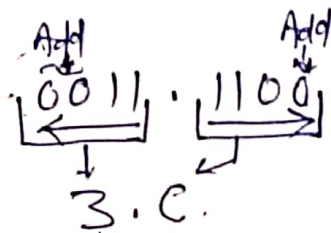 Add Add
0011 . 1100
3 . C.